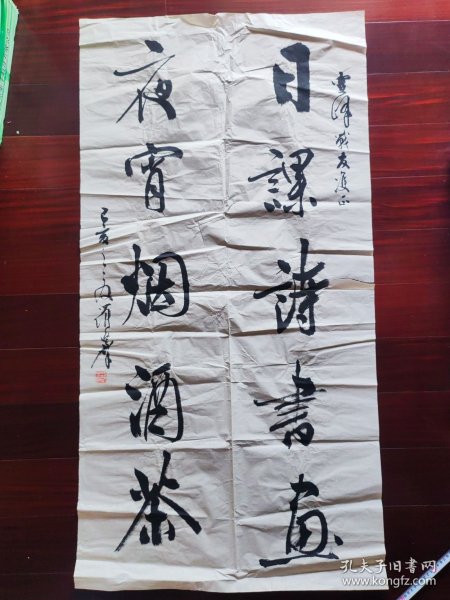 日課詩書畫
夜宵烟酒茶
战友雅正
己亥
孔夫子旧书网
www.kongfz.com